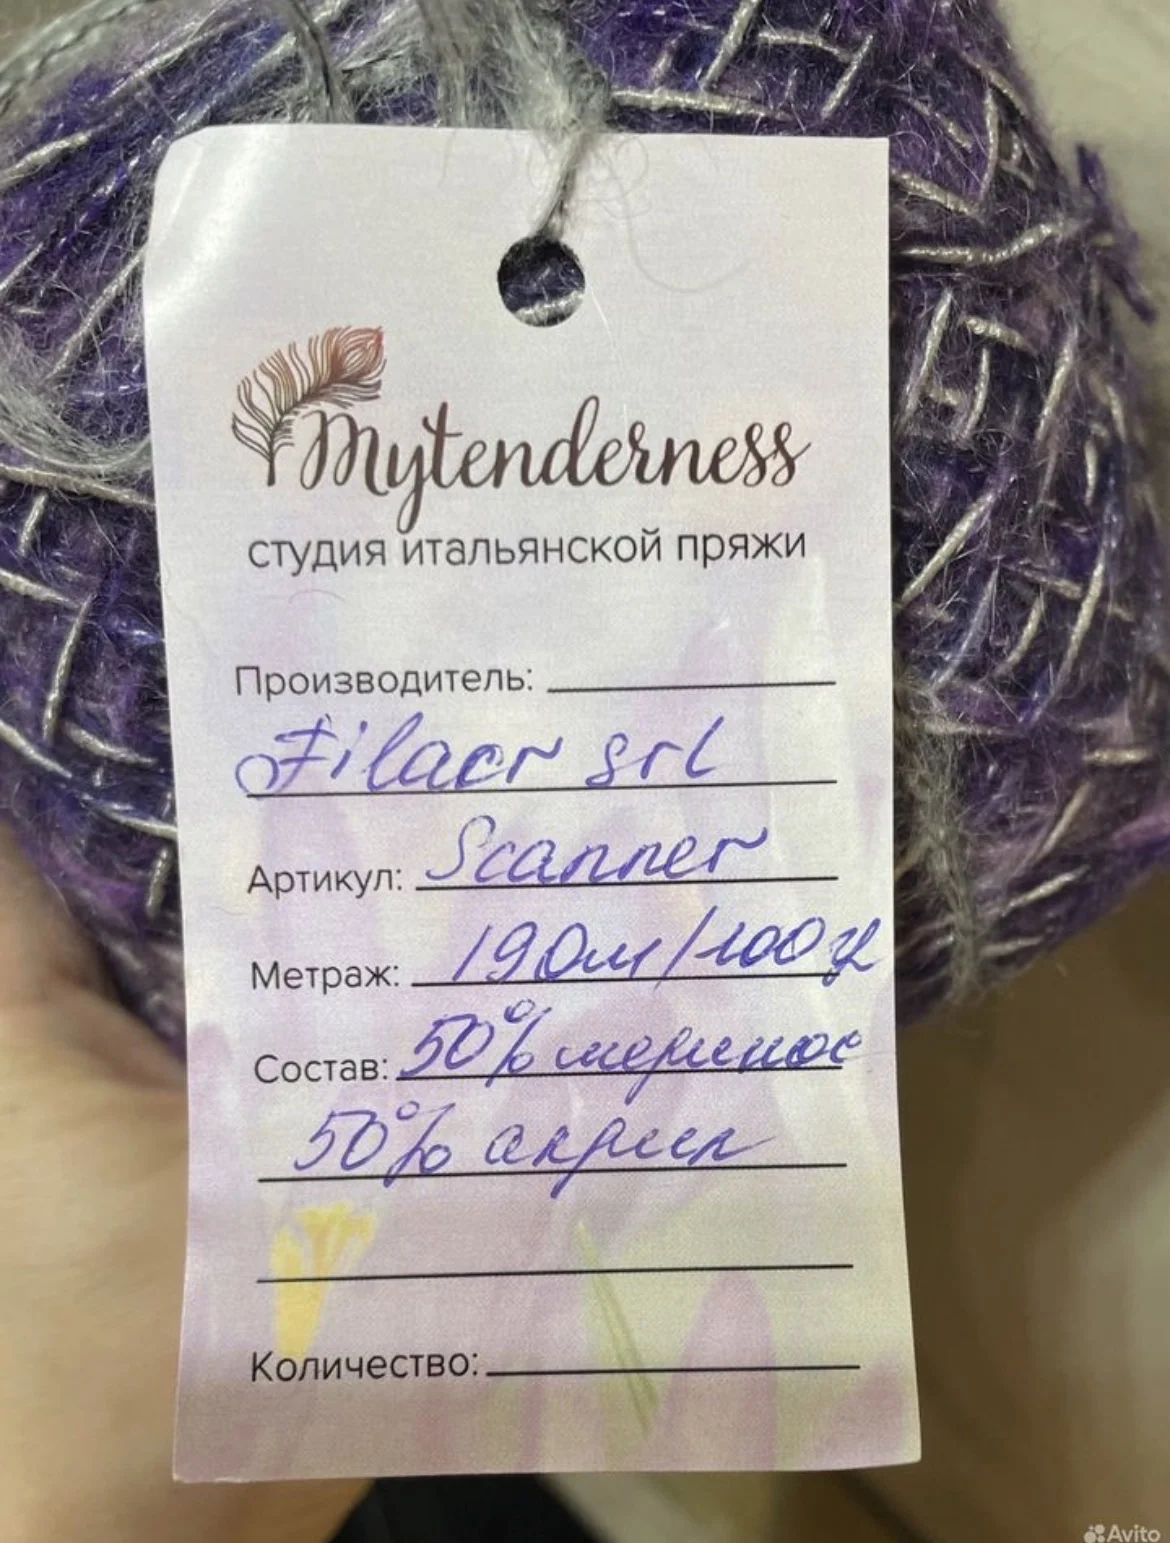 Mytenderness
студия итальянской пряжи
Производитель:
Filacr srl
Артикул: Scanner
Метраж: 190м/100г
Состав: 50% меринос
50% акрил
Количество:
Avito